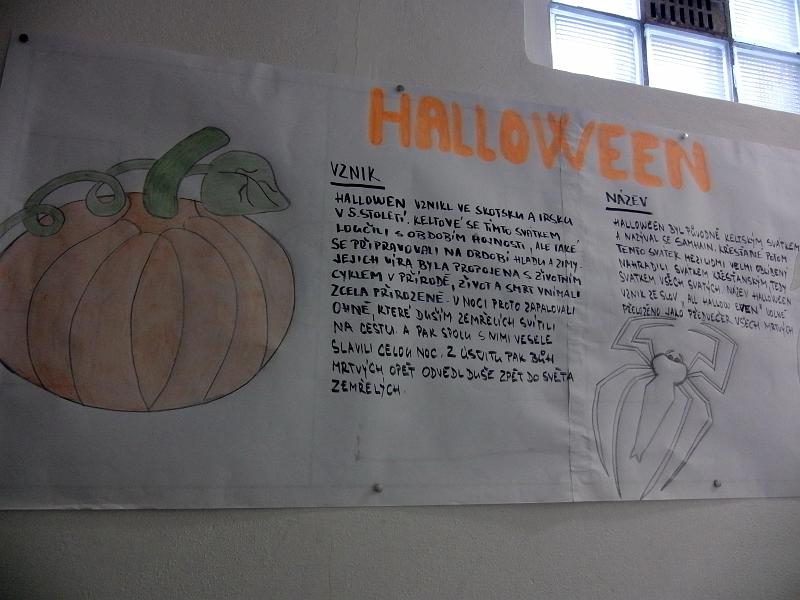 HALLOWEEN
VZNIK
HALLOWEN VZNIKL VE SKOTSKU A IRSKU
V 5. STOLETÍ. KELTOVÉ SE TÍMTO SVÁTKEM
LOUČILI S OBDOBÍM HOJNOSTI, ALE TAKÉ
SE PŘIPRAVOVALI NA OBDOBÍ HLADU A ZIMY.
JEJICH VÍRA BYLA PROPOJENA S ŽIVOTNÍM
CYKLEM V PŘÍRODĚ, ŽIVOT A SMRT VNÍMALI
ZCELA PŘIROZENĚ. V NOCI PROTO ZAPALOVALI
OHNĚ, KTERÉ DUŠÍM ZEMŘELÝCH SVÍTILI
NA CESTU. A PAK SPOLU S NIMI VESELE
SLAVILI CELOU NOC. Z ÚSVITU PAK BŮH
MRTVÝCH OPĚT ODVEDL DUŠE ZPĚT DO SVĚTA
ZEMŘELÝCH.
NÁZEV
HALLOWEEN BYL PŮVODNĚ KELTSKÝM SVÁTKEM
A NAZÝVAL SE SAMHAIN. KŘESŤANÉ POTOM
TENTO SVÁTEK MEZI LIDMI VELMI OBLÍBENÝ
NAHRADILI SVÁTKEM KŘESŤANSKÝM, TEDY
SVÁTKEM VŠECH SVATÝCH. NÁZEV HALLOWEEN
VZNIK ZE SLOV "ALL HALLOW EVEN" VOLNĚ
PŘELOŽENO JAKO PŘEDVEČER VŠECH MRTVÝCH